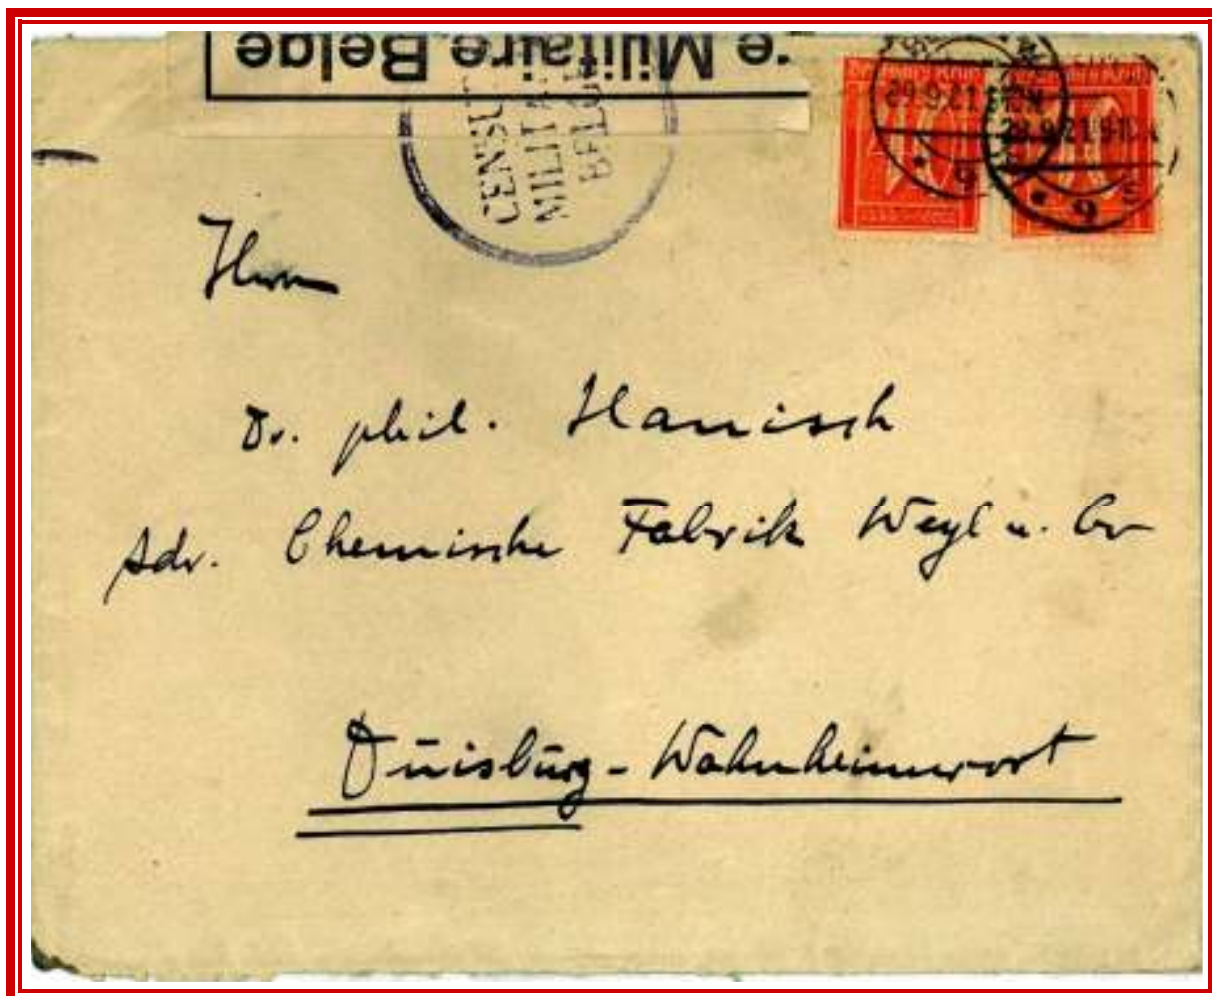 Militaire Belge
CENSU
MILITA
BELG
29.9.21
29.9.21.9-10
* 9
* 9 S
Herrn
Dr. phil. Hanisch
Adr. Chemische Fabrik Weyl u. Co
Duisburg-Wahnheimerort